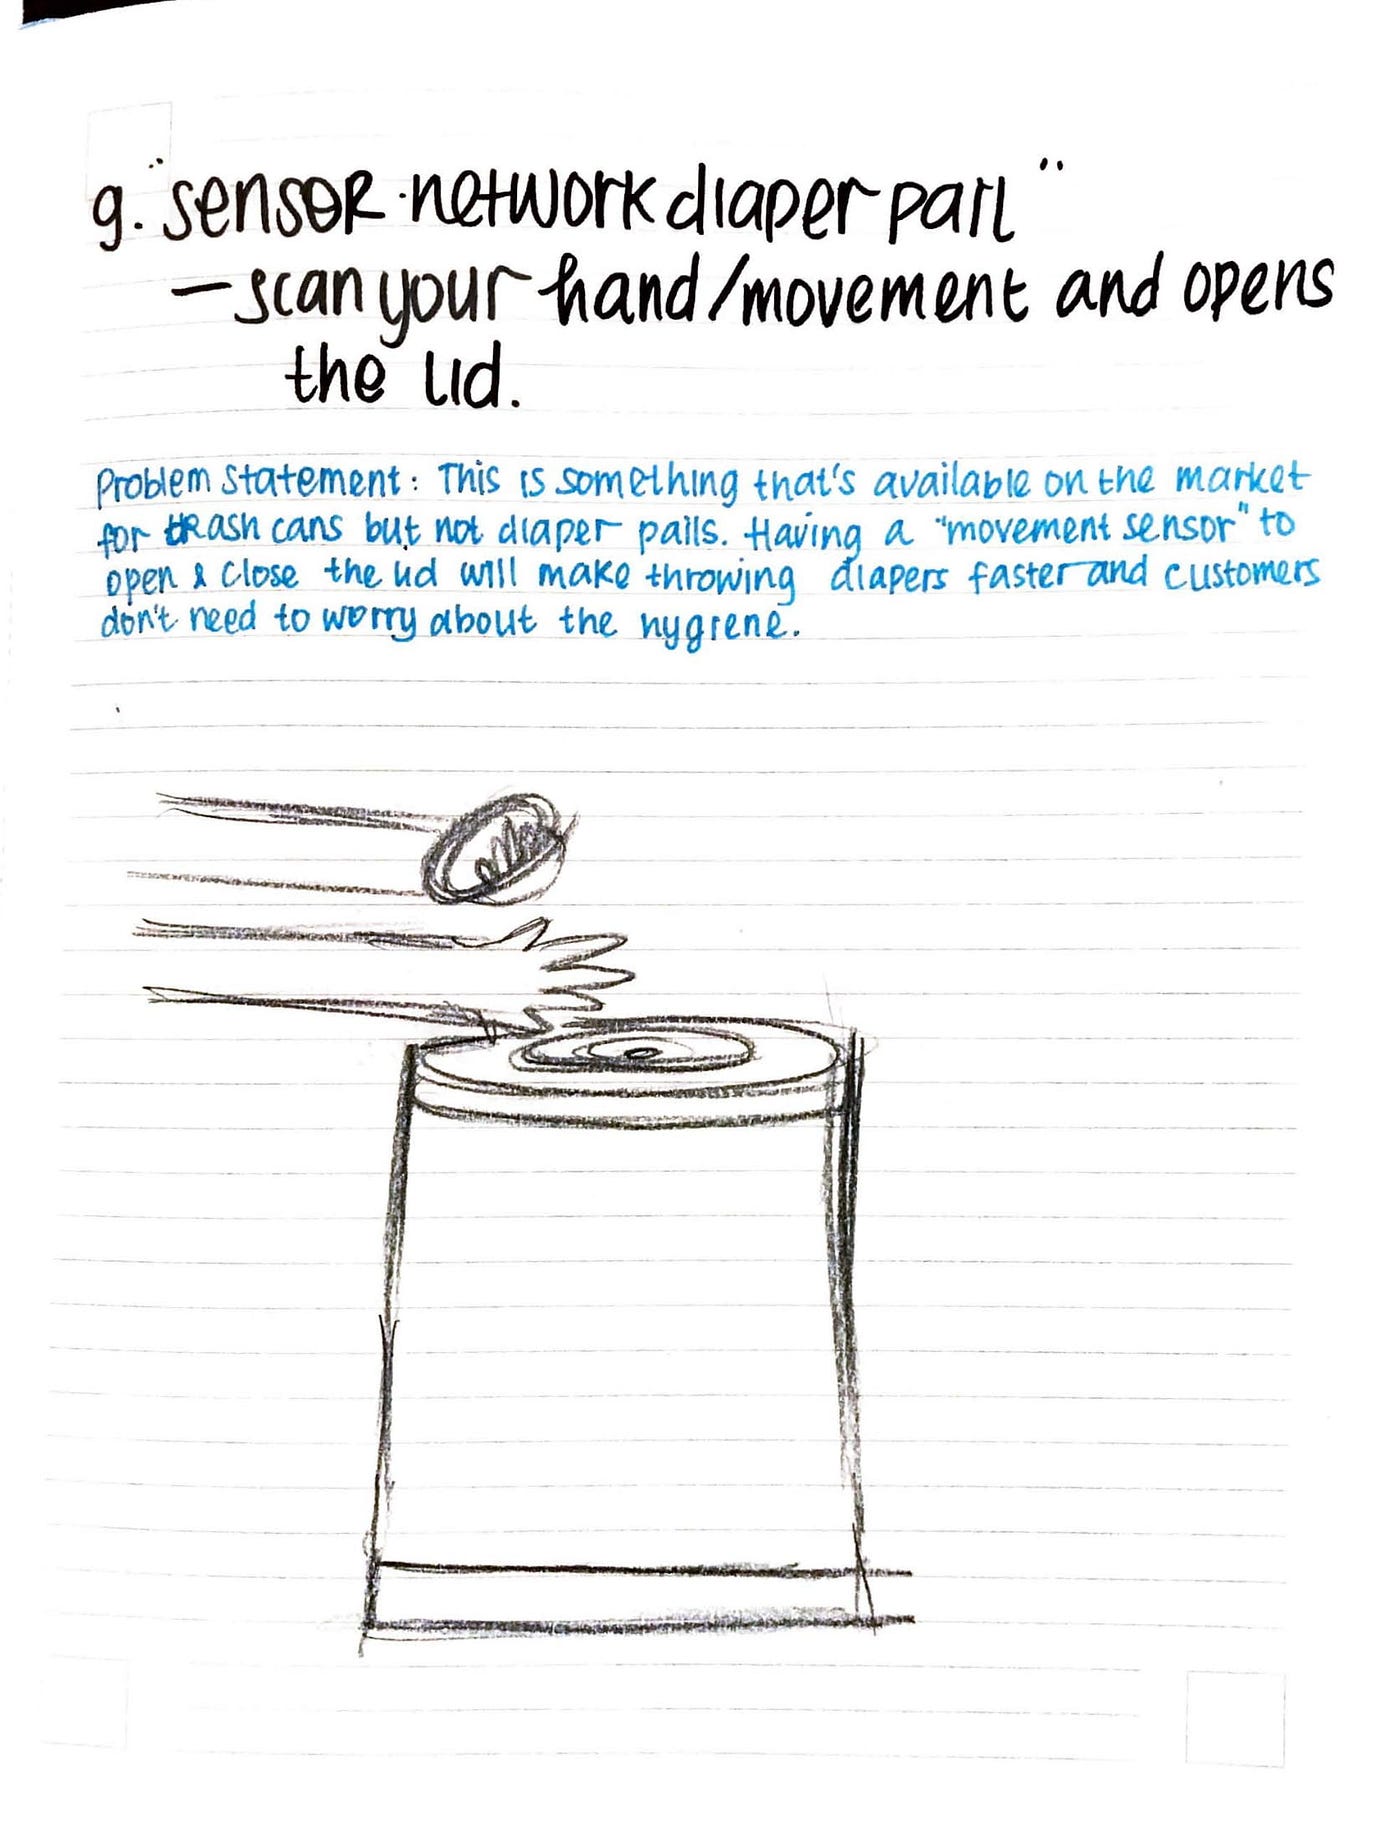 9. "sensor network diaper pail"
— scan your hand/movement and opens
the lid.
Problem Statement: This is something that's available on the market
for trash cans but not diaper pails. Having a "movement sensor" to
open & close the lid will make throwing diapers faster and customers
don't need to worry about the hygiene.